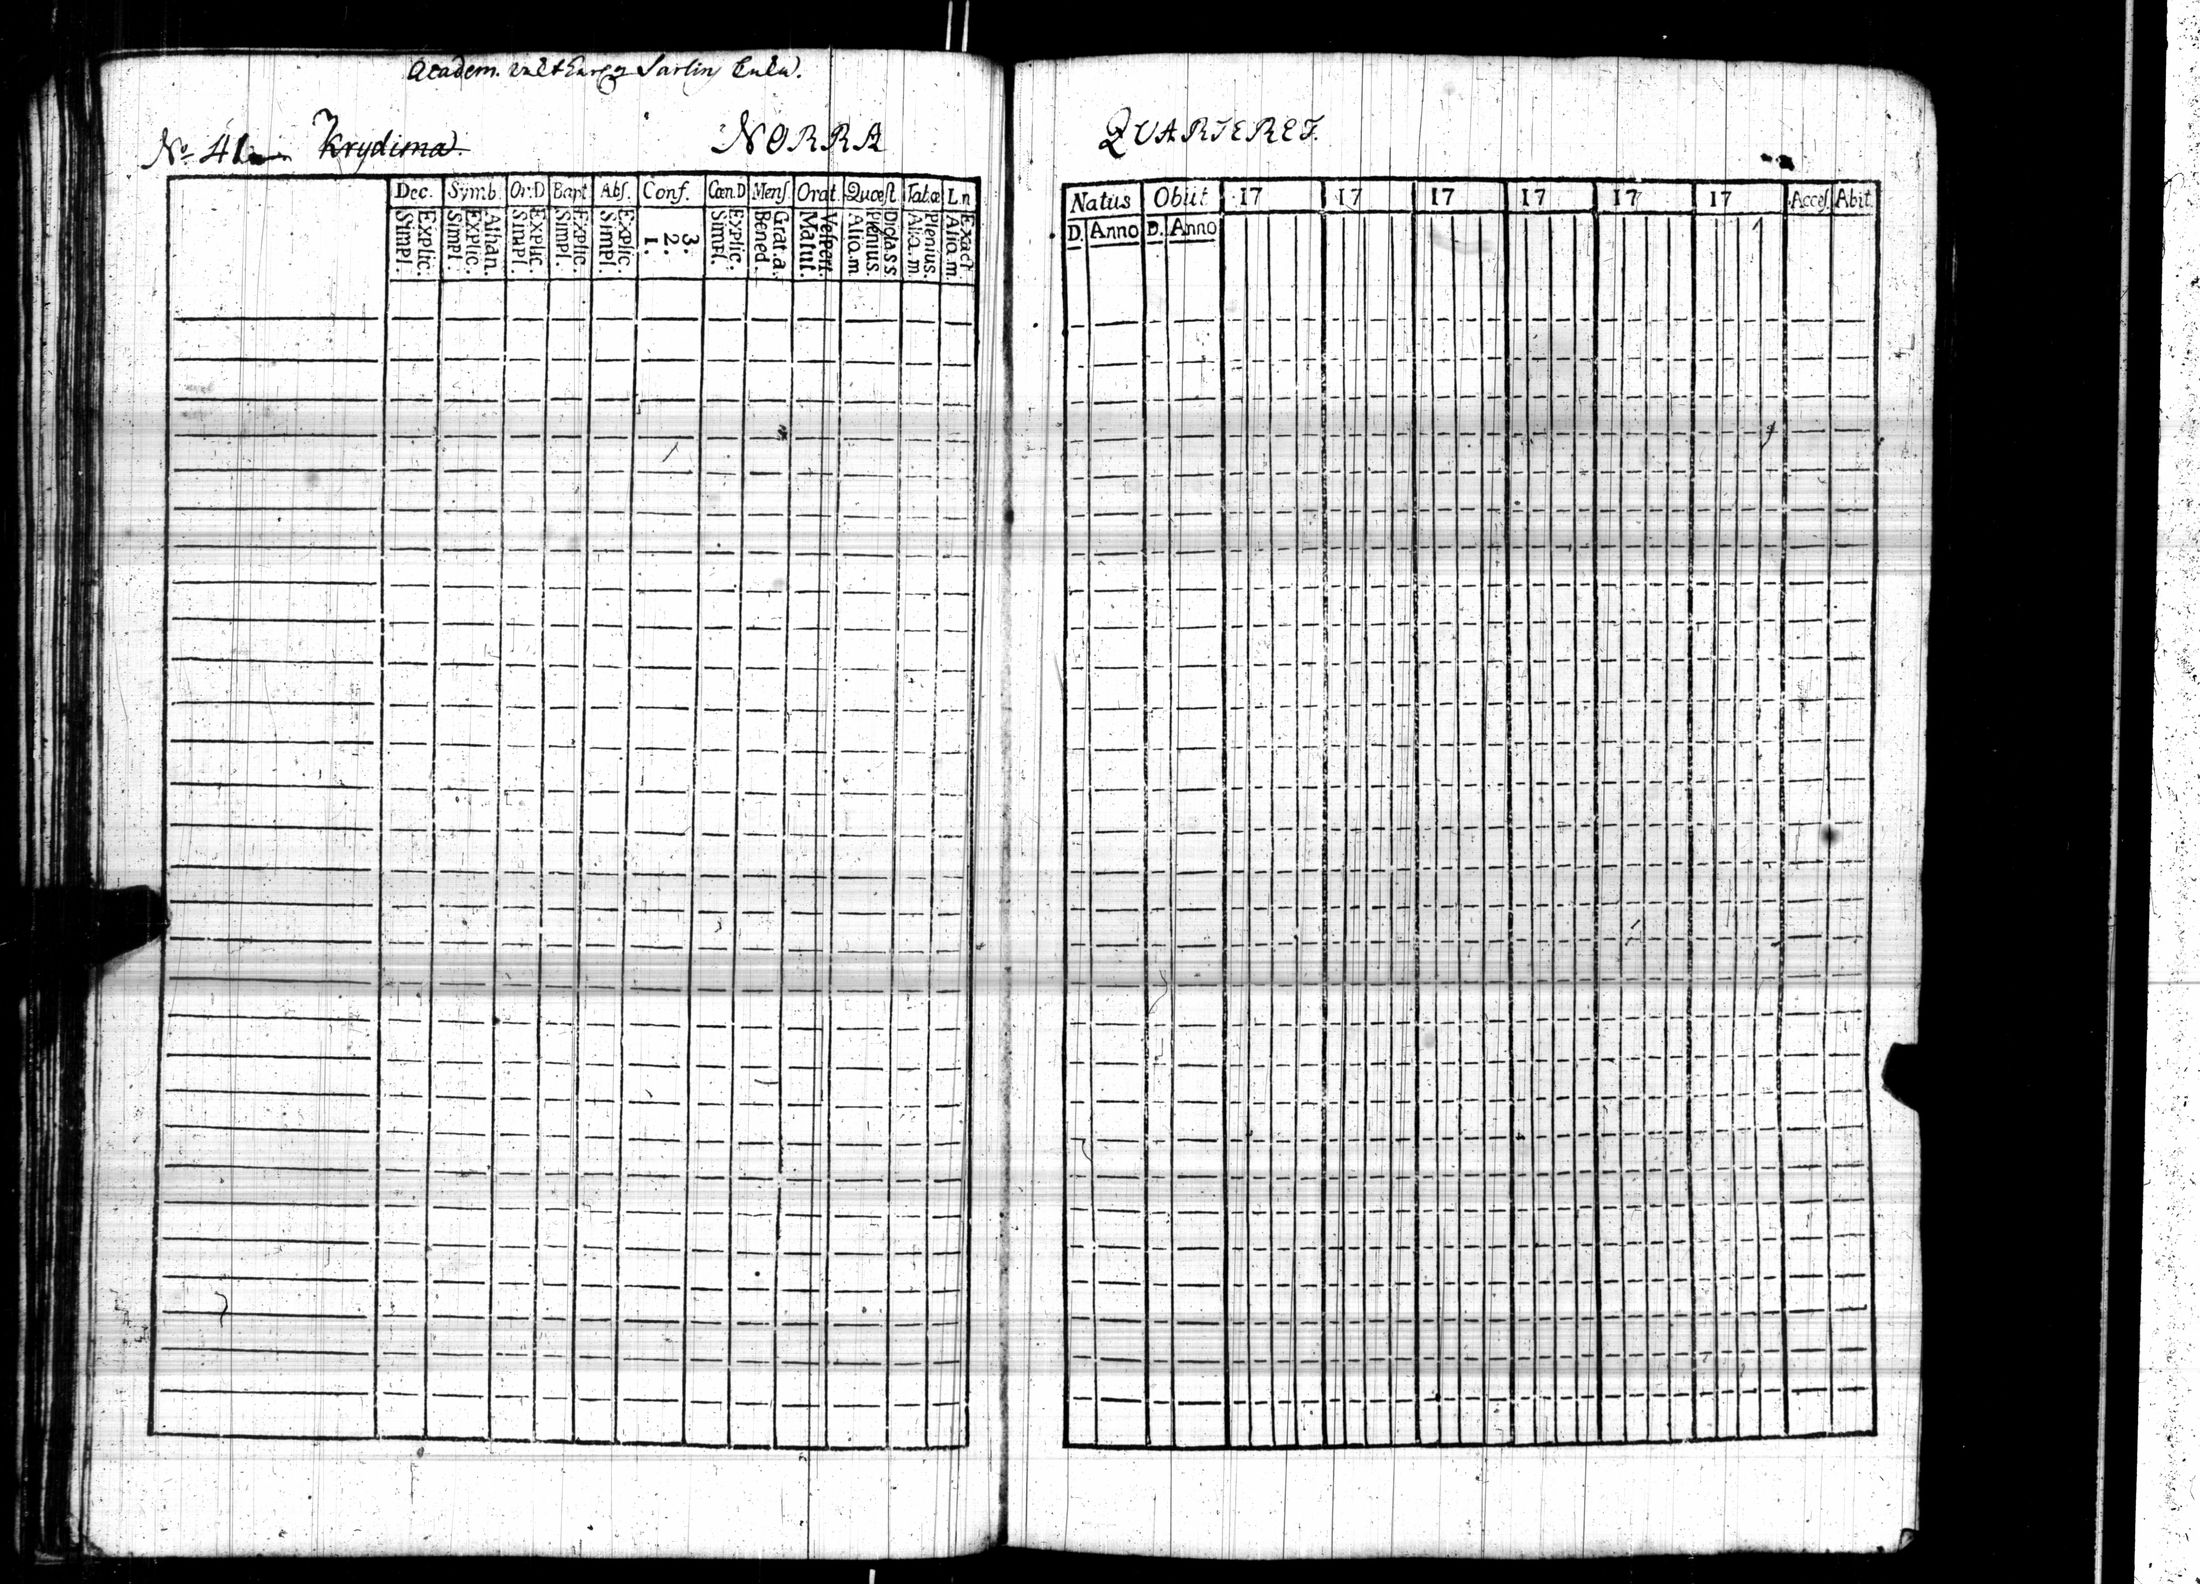 Academ. Sarlin Enka.
No 41 Krydima. NORRA QUARTERET.
Dec. Symb. Or:D Bapt Abs. Conf. Cœn.D Mens Orat. Quœst Tab.œ L.n
Explic. Simpl. Athan. Explic. Simpl. Explic. Simpl. Explic. Simpl. Explic. Simpl. 3. 2. 1. Explic. Simpl. Grat.a. Bened. Vespert. Matut. D:cla.ss. Plenius. Aliq.m. Plenius. Aliq.m. Exact. Aliq.m.
Natus Obiit 17 17 17 17 17 17 Acces. Abit.
D. Anno D. Anno